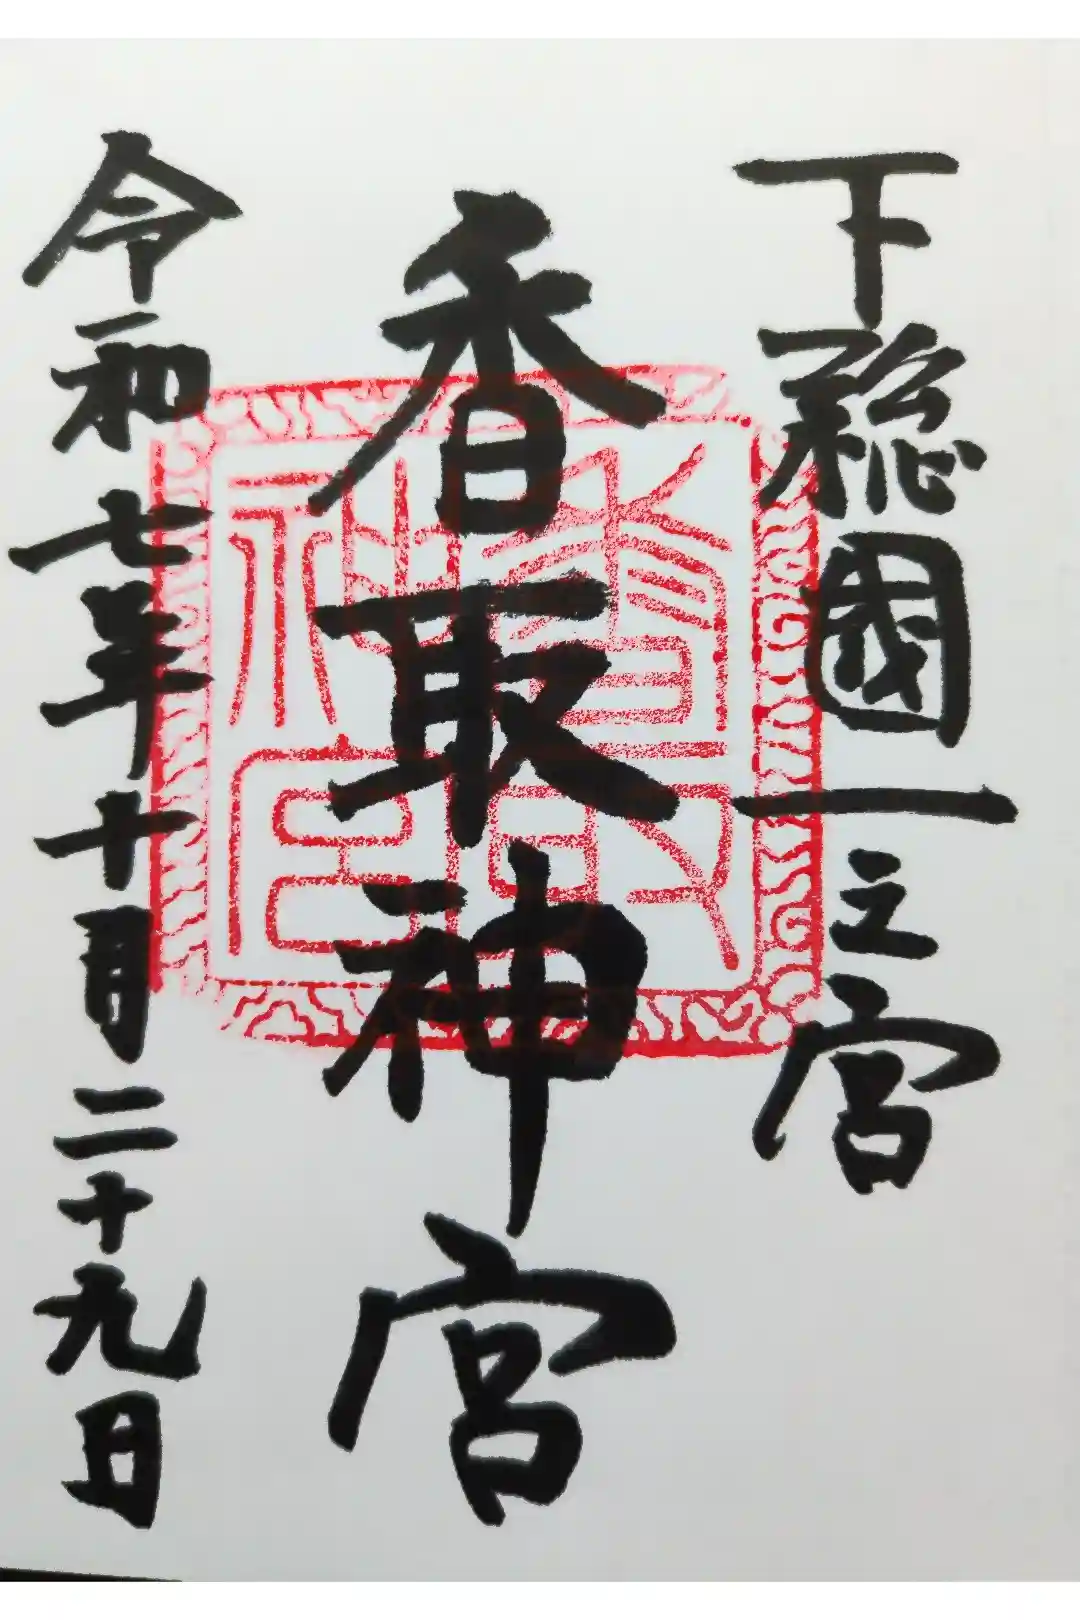 下総國一之宮
香取神宮
香取神宮
令和七年十月二十九日